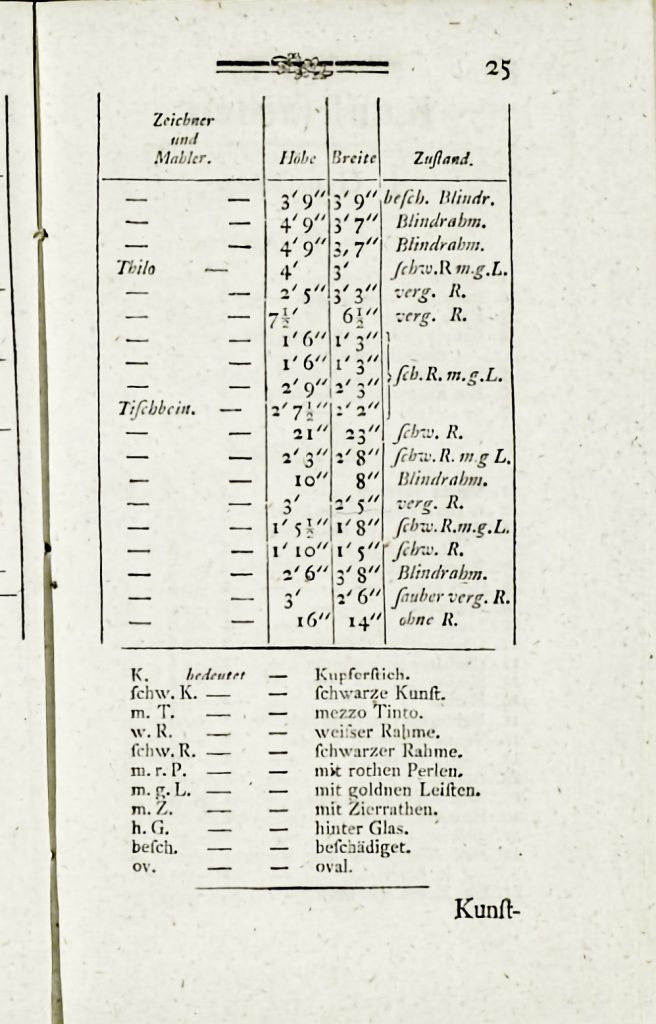 25
Zeichner
und
Mahler. Höhe Breite Zuſtand.
— — 3′ 9″ 3′ 9″ beſch. Blindr.
— — 4′ 9″ 3′ 7″ Blindrahm.
— — 4′ 9″ 3, 7″ Blindrahm.
Thilo — 4′ 3′ ſchw. R m. g. L.
— — 2′ 5″ 3′ 3″ verg. R.
— — 7½′ 6½″ verg. R.
— — 1′ 6″ 1′ 3″
— — 1′ 6″ 1′ 3″
ſch. R. m. g. L.
— — 2′ 9″ 2′ 3″
Tiſchbein. — 2′ 7½″ 2′ 2″
— — 21″ 23″ ſchw. R.
— — 2′ 3″ 2′ 8″ ſchw. R. m. g L.
— — 10″ 8″ Blindrahm.
— — 3′ 2′ 5″ verg. R.
— — 1′ 5½″ 1′ 8″ ſchw. R. m. g. L.
— — 1′ 10″ 1′ 5″ ſchw. R.
— — 2′ 6″ 3′ 8″ Blindrahm.
— — 3′ 2′ 6″ ſauber verg. R.
— — 16″ 14″ ohne R.
K. bedeutet — Kupferſtich.
ſchw. K. — — ſchwarze Kunſt.
m. T. — — mezzo Tinto.
w. R. — — weiſser Rahme.
ſchw. R. — — ſchwarzer Rahme.
m. r. P. — — mit rothen Perlen.
m. g. L. — — mit goldnen Leiſten.
m. Z. — — mit Zierrathen.
h. G. — — hinter Glas.
beſch. — — beſchädiget.
ov. — — oval.
Kunſt-